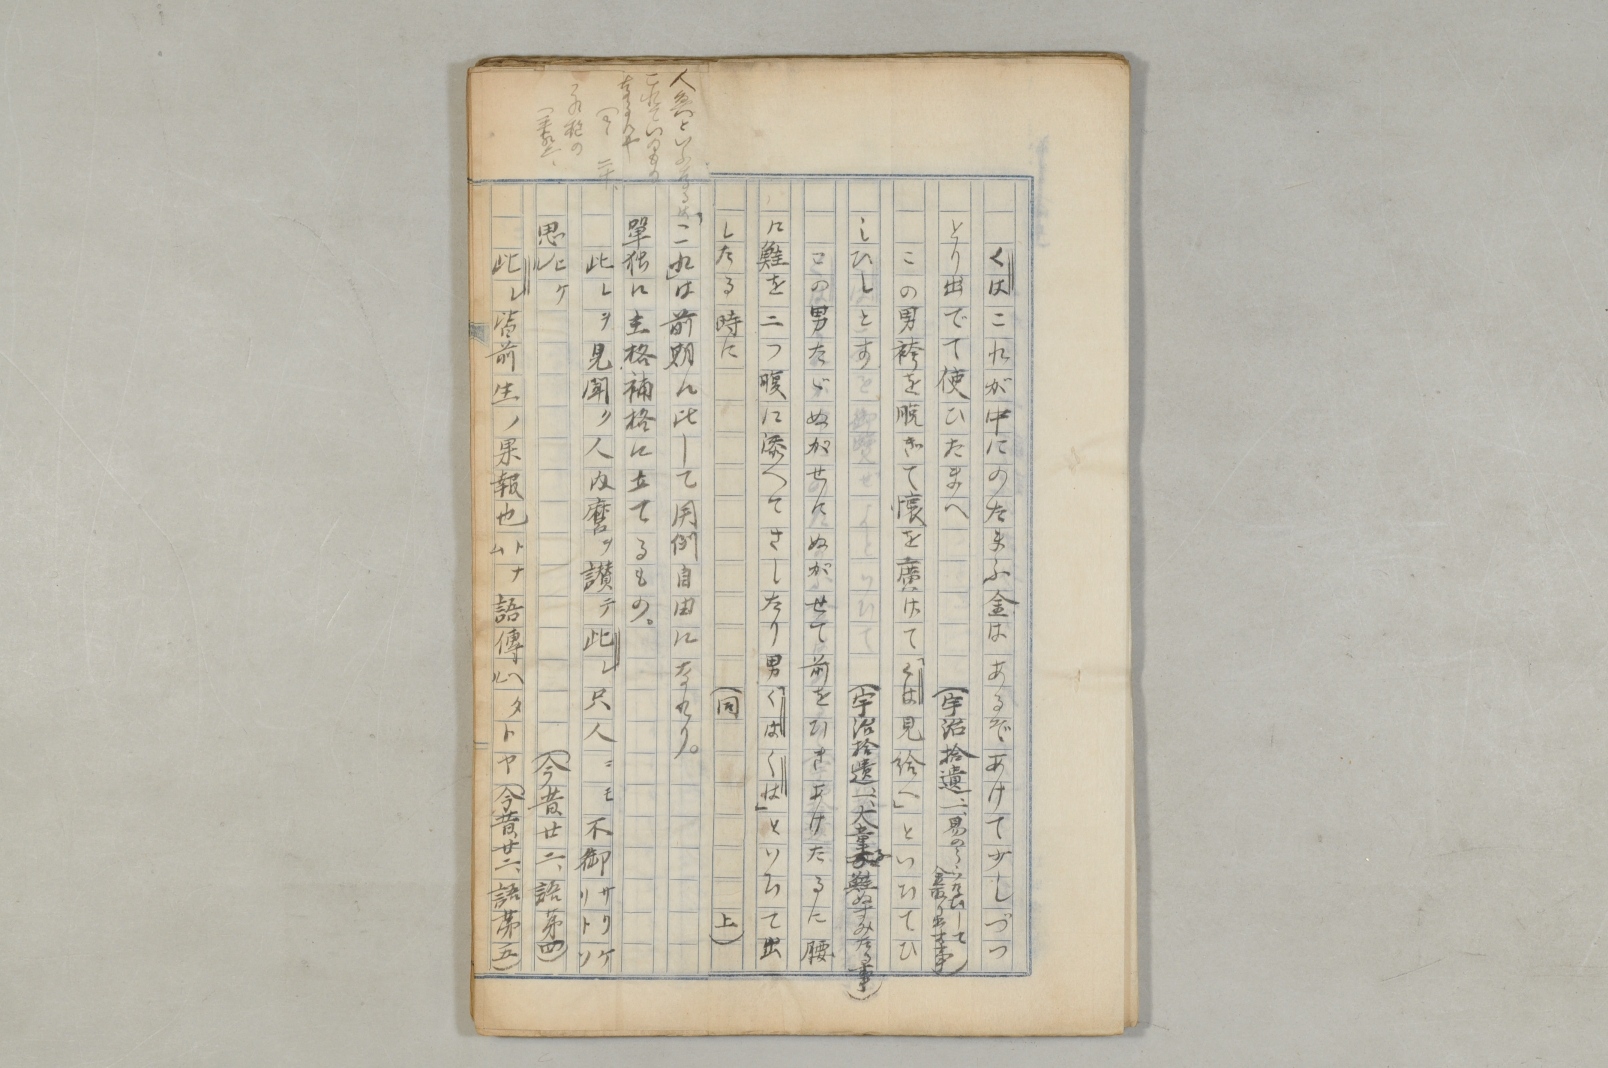 くはこれが中にのたまふ金は あるぞあけて少しづつ
とり出でて使ひたまへ
(宇治拾遺一、易のうらなひして金取り出す事)
この男袴を脱ぎて懐を広げて「くは見給へ」といひてひ
しひしとす
(宇治拾遺一、大童子鮭ぬすみたる事)
この男たゞぬがせにぬがせて前をひきあけたるに腰
に鮭を二つ腹に添へてさしたり男「くはくは」といひて出
したる時に (同 上)
「これ」は前期に比して用例自由になれり。
單独に主格補格に立てるもの。
此レヲ見聞ク人内麿ヲ讃テ此レ只人ニモ不御サリケリトソ
思ヒケル (今昔廿二、語第四)
此レ皆前生ノ果報也ケリトナム語傳ヘタルトヤ (今昔廿二、語第五)